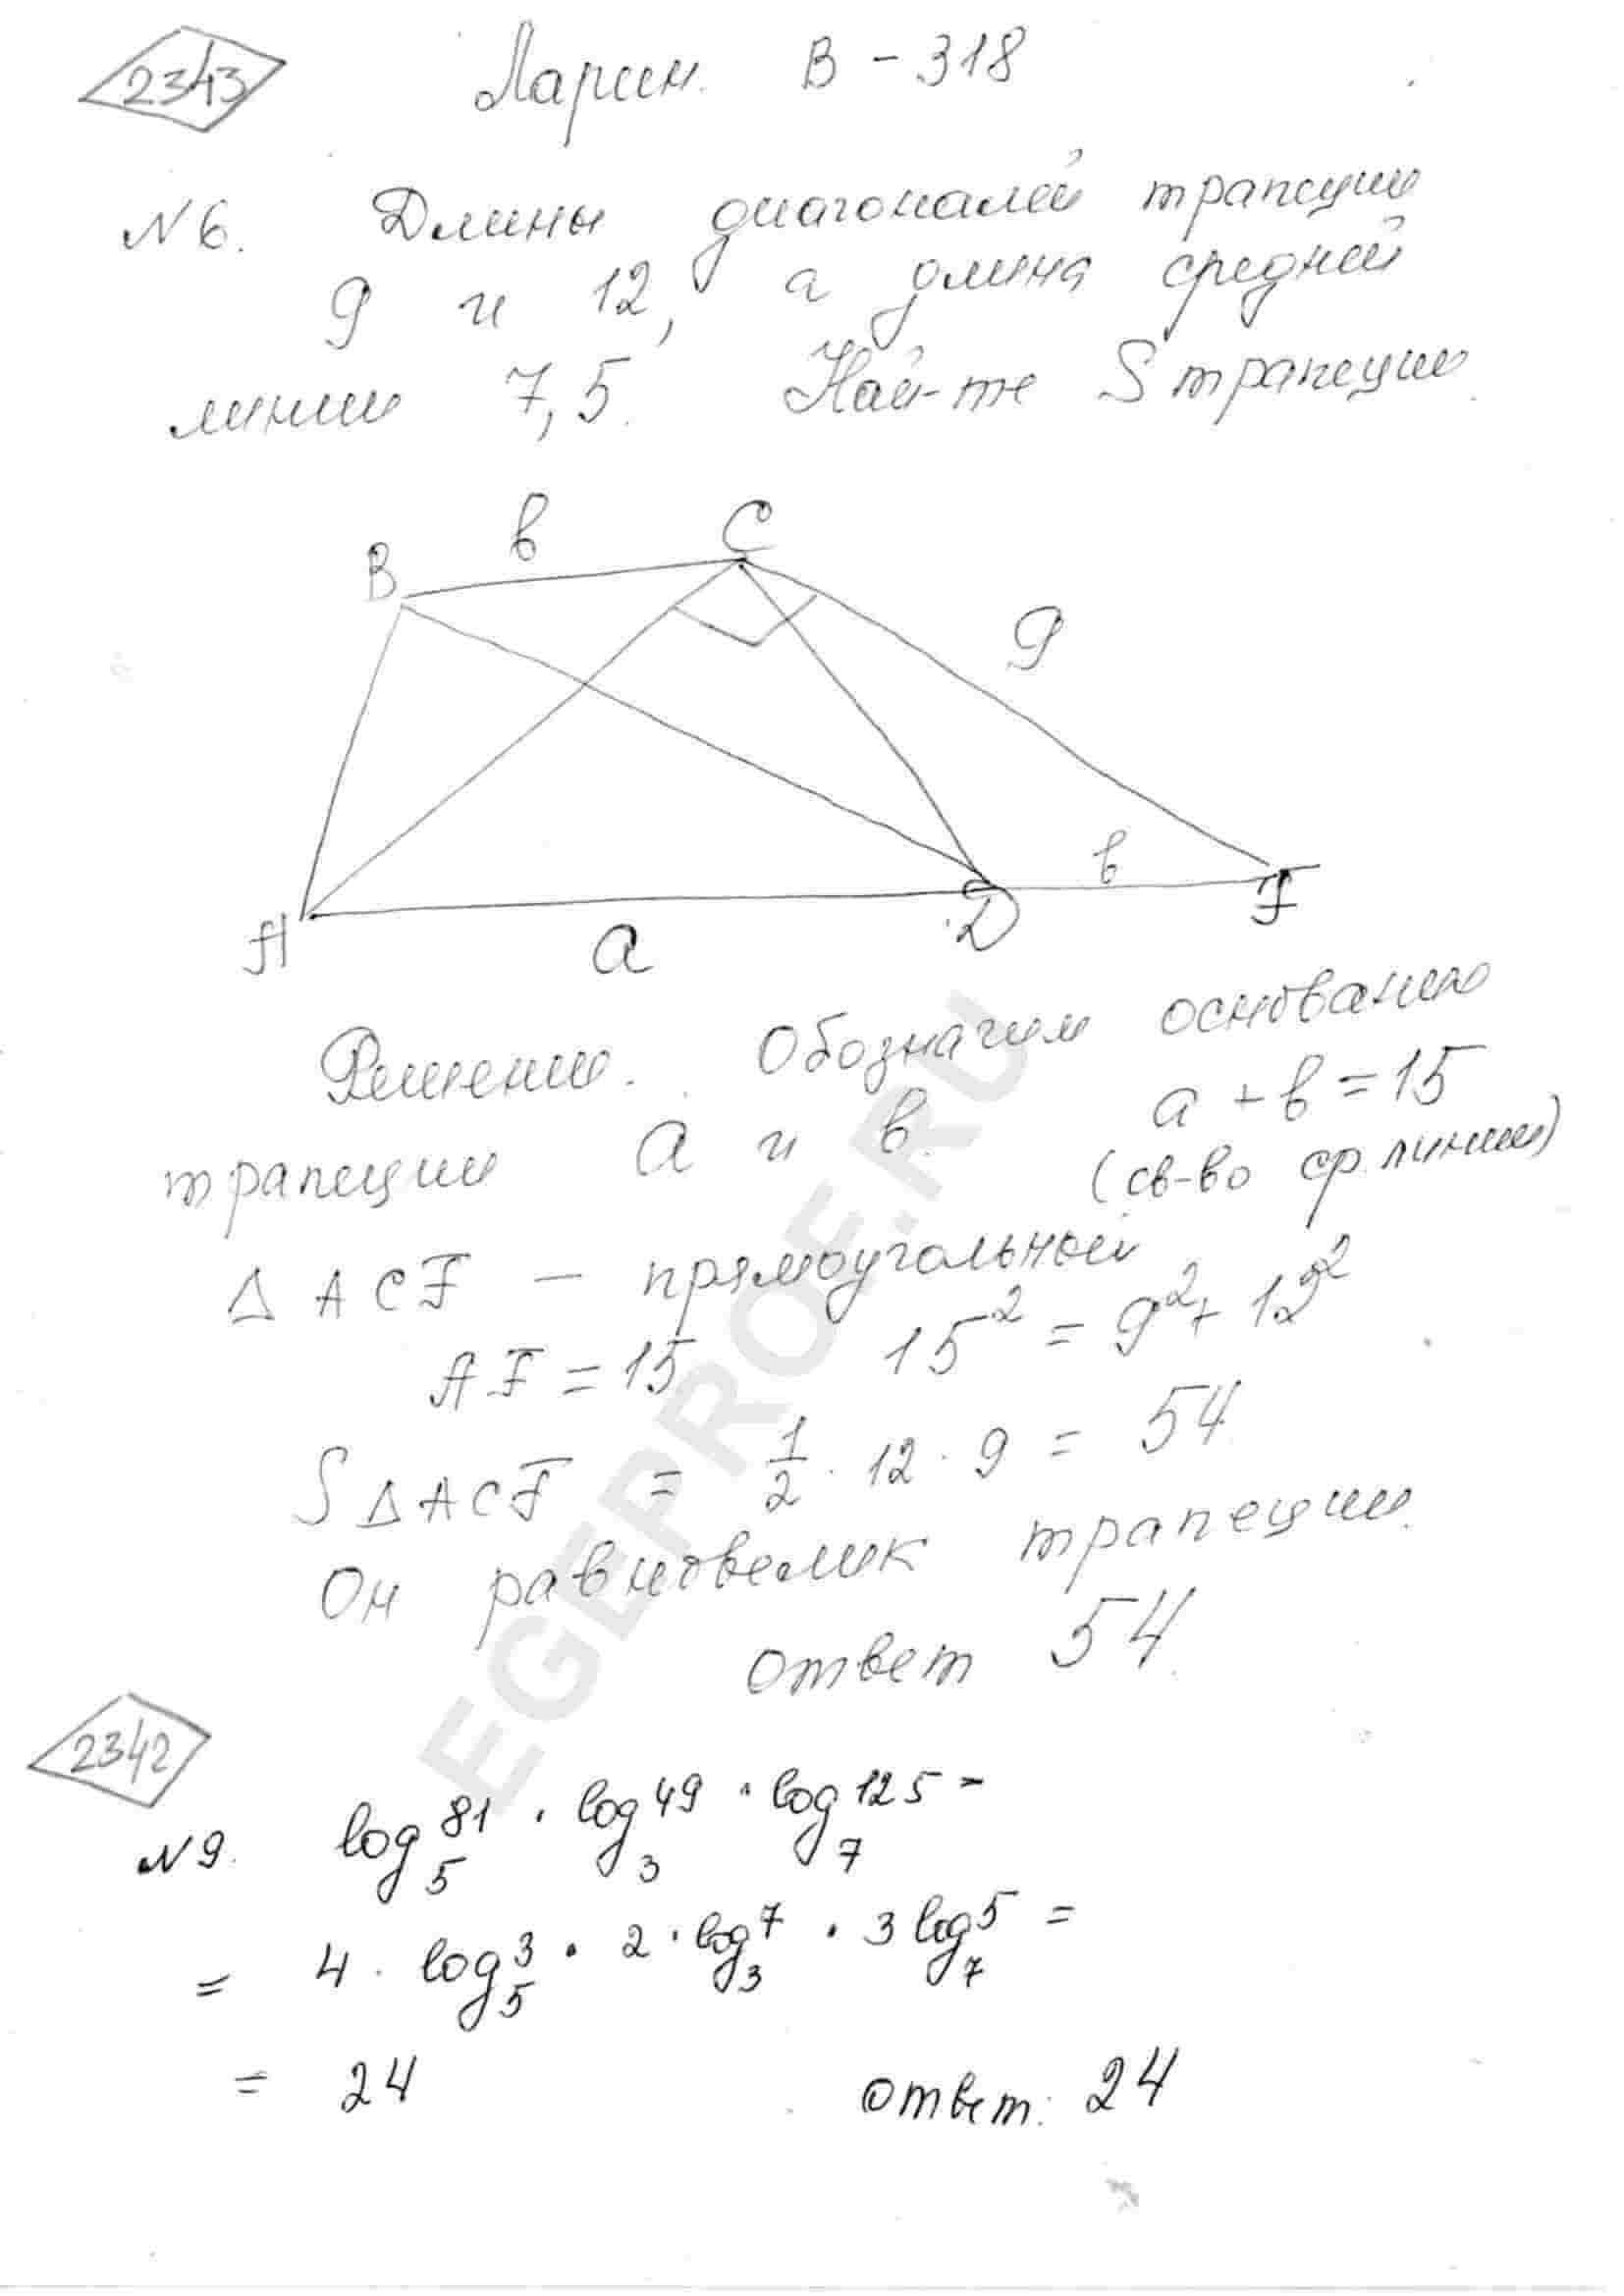 2343
Ларин. В - 318
N 6. Длины диагоналей трапеции
9 и 12, а длина средней
линии 7,5. Най-те S трапеции.
в
C
B
9
в
A
a
D
F
Решение. Обозначим основания
трапеции a и в. a + в = 15
(св-во ср. линии)
Δ ACF — прямоугольный
AF = 15 15² = 9² + 12²
S Δ ACF = 1/2 · 12 · 9 = 54
Он равновелик трапеции.
ответ 54.
2342
N 9. log₅ 81 · log₃ 49 · log₇ 125 =
= 4 · log₅ 3 · 2 · log₃ 7 · 3 log₇ 5 =
= 24 ответ: 24
EGEPROF.RU